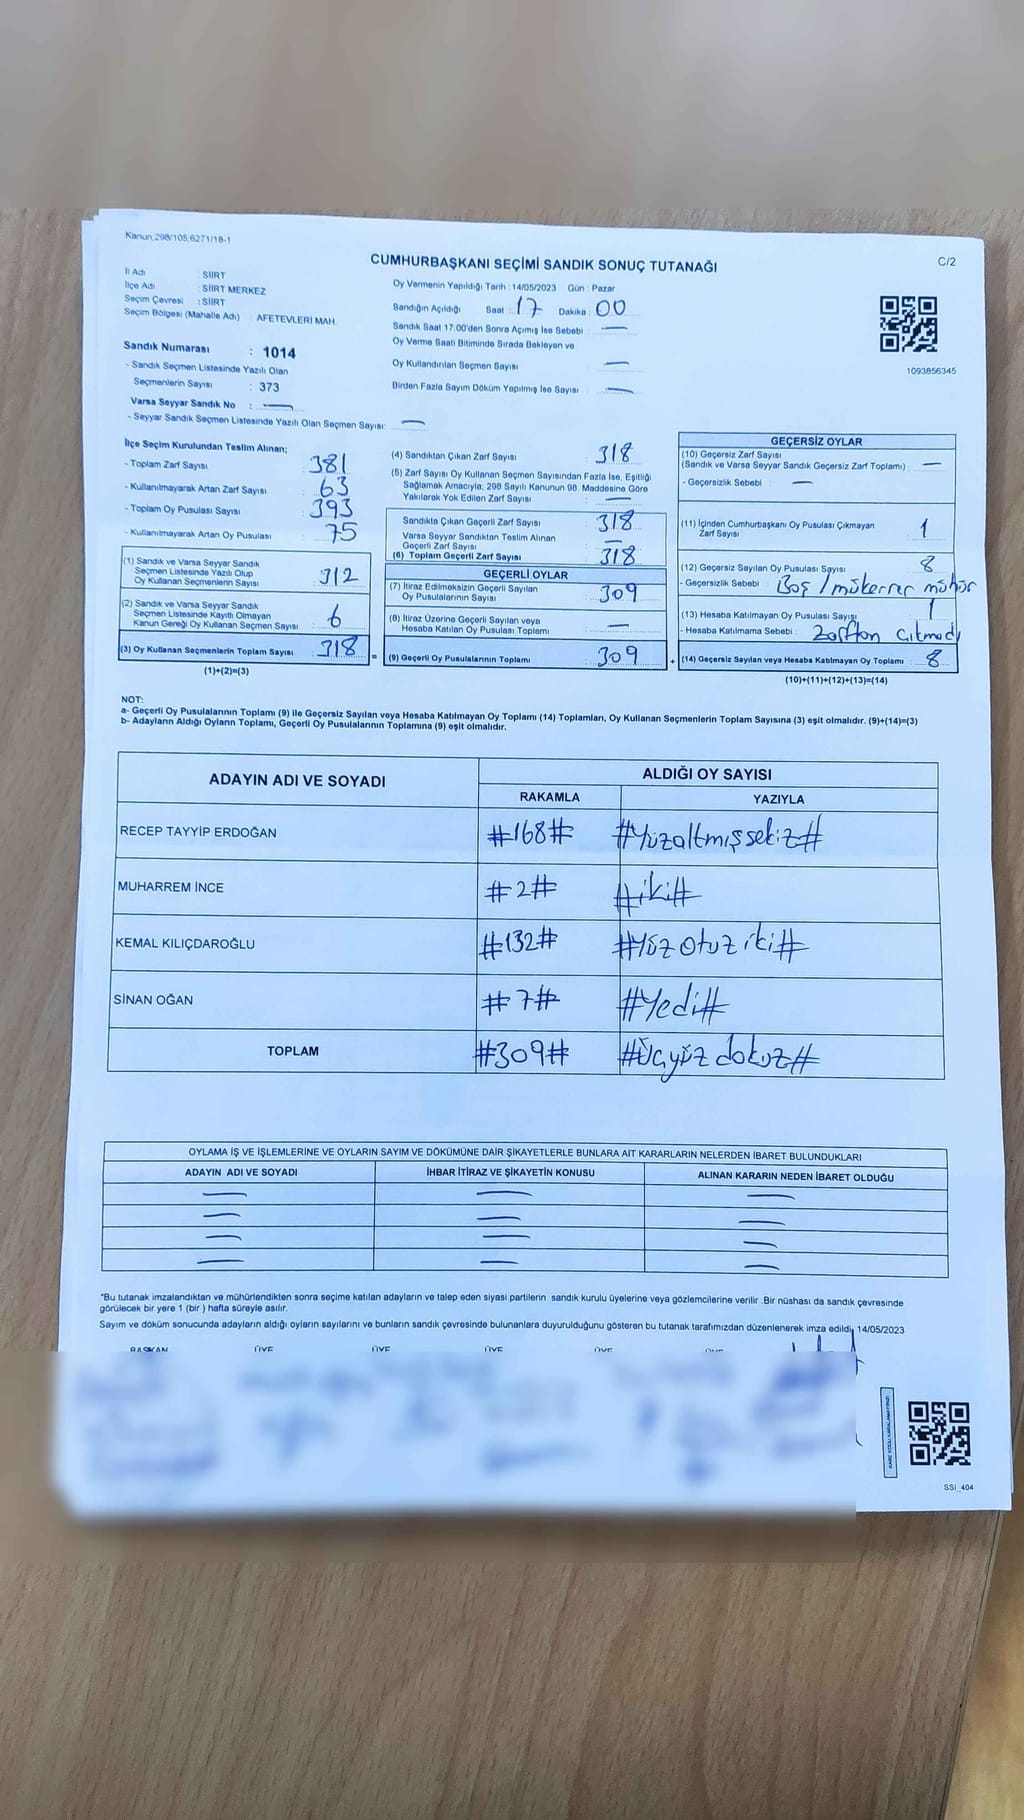 Kanun,298/105;6271/18-1
CUMHURBAŞKANI SEÇİMİ SANDIK SONUÇ TUTANAĞI
C/2
İl Adı : SİİRT
İlçe Adı : SİİRT MERKEZ
Seçim Çevresi : SİİRT
Seçim Bölgesi (Mahalle Adı) : AFETEVLERİ MAH.
Sandık Numarası : 1014
- Sandık Seçmen Listesinde Yazılı Olan
Seçmenlerin Sayısı : 373
Varsa Seyyar Sandık No : —
- Seyyar Sandık Seçmen Listesinde Yazılı Olan Seçmen Sayısı: —
Oy Vermenin Yapıldığı Tarih : 14/05/2023 Gün : Pazar
Sandığın Açıldığı Saat : 17 Dakika : 00
Sandık Saat 17:00'den Sonra Açımış İse Sebebi : —
Oy Verme Saati Bitiminde Sırada Bekleyen ve
Oy Kullandırılan Seçmen Sayısı —
Birden Fazla Sayım Döküm Yapılmış İse Sayısı : —
1093856345
İlçe Seçim Kurulundan Teslim Alınan;
- Toplam Zarf Sayısı : 381
- Kullanılmayarak Artan Zarf Sayısı : 63
- Toplam Oy Pusulası Sayısı : 393
- Kullanılmayarak Artan Oy Pusulası : 75
(1) Sandık ve Varsa Seyyar Sandık
Seçmen Listesinde Yazılı Olup
Oy Kullanan Seçmenlerin Sayısı : 312
(2) Sandık ve Varsa Seyyar Sandık
Seçmen Listesinde Kayıtlı Olmayan
Kanun Gereği Oy Kullanan Seçmen Sayısı : 6
(3) Oy Kullanan Seçmenlerin Toplam Sayısı : 318 =
(1)+(2)=(3)
(4) Sandıktan Çıkan Zarf Sayısı : 318
(5) Zarf Sayısı Oy Kullanan Seçmen Sayısından Fazla İse, Eşitliği
Sağlamak Amacıyla; 298 Sayılı Kanunun 98. Maddesine Göre
Yakılarak Yok Edilen Zarf Sayısı : —
Sandıkta Çıkan Geçerli Zarf Sayısı : 318
Varsa Seyyar Sandıktan Teslim Alınan
Geçerli Zarf Sayısı : —
(6) Toplam Geçerli Zarf Sayısı : 318
GEÇERLİ OYLAR
(7) İtiraz Edilmeksizin Geçerli Sayılan
Oy Pusulalarının Sayısı : 309
(8) İtiraz Üzerine Geçerli Sayılan veya
Hesaba Katılan Oy Pusulası Toplamı : —
(9) Geçerli Oy Pusulalarının Toplamı : 309 +
GEÇERSİZ OYLAR
(10) Geçersiz Zarf Sayısı
(Sandık ve Varsa Seyyar Sandık Geçersiz Zarf Toplamı) : —
- Geçersizlik Sebebi : —
(11) İçinden Cumhurbaşkanı Oy Pusulası Çıkmayan
Zarf Sayısı : 1
(12) Geçersiz Sayılan Oy Pusulası Sayısı : 8
- Geçersizlik Sebebi : Boş / mükerrer mühür
(13) Hesaba Katılmayan Oy Pusulası Sayısı : 1
- Hesaba Katılmama Sebebi : Zarftan çıkmadı
(14) Geçersiz Sayılan veya Hesaba Katılmayan Oy Toplamı : 8
(10)+(11)+(12)+(13)=(14)
NOT:
a- Geçerli Oy Pusulalarının Toplamı (9) ile Geçersiz Sayılan veya Hesaba Katılmayan Oy Toplamı (14) Toplamları, Oy Kullanan Seçmenlerin Toplam Sayısına (3) eşit olmalıdır. (9)+(14)=(3)
b- Adayların Aldığı Oyların Toplamı, Geçerli Oy Pusulalarının Toplamına (9) eşit olmalıdır.
ADAYIN ADI VE SOYADI ALDIĞI OY SAYISI
RAKAMLA YAZIYLA
RECEP TAYYİP ERDOĞAN #168# #Yüzaltmışsekiz#
MUHARREM İNCE #2# #iki#
KEMAL KILIÇDAROĞLU #132# #Yüz otuz iki#
SİNAN OĞAN #7# #Yedi#
TOPLAM #309# #Üçyüz dokuz#
OYLAMA İŞ VE İŞLEMLERİNE VE OYLARIN SAYIM VE DÖKÜMÜNE DAİR ŞİKAYETLERLE BUNLARA AIT KARARLARIN NELERDEN İBARET BULUNDUKLARI
ADAYIN ADI VE SOYADI İHBAR İTİRAZ VE ŞİKAYETİN KONUSU ALINAN KARARIN NEDEN İBARET OLDUĞU
— — —
— — —
— — —
— — —
"Bu tutanak imzalandıktan ve mühürlendikten sonra seçime katılan adayların ve talep eden siyasi partilerin sandık kurulu üyelerine veya gözlemcilerine verilir .Bir nüshası da sandık çevresinde
görülecek bir yere 1 (bir ) hafta süreyle asılır.
Sayım ve döküm sonucunda adayların aldığı oyların sayılarını ve bunların sandık çevresinde bulunanlara duyurulduğunu gösteren bu tutanak tarafımızdan düzenlenerek imza edildi. 14/05/2023
BAŞKAN ÜYE ÜYE ÜYE ÜYE ÜYE
SSI_404